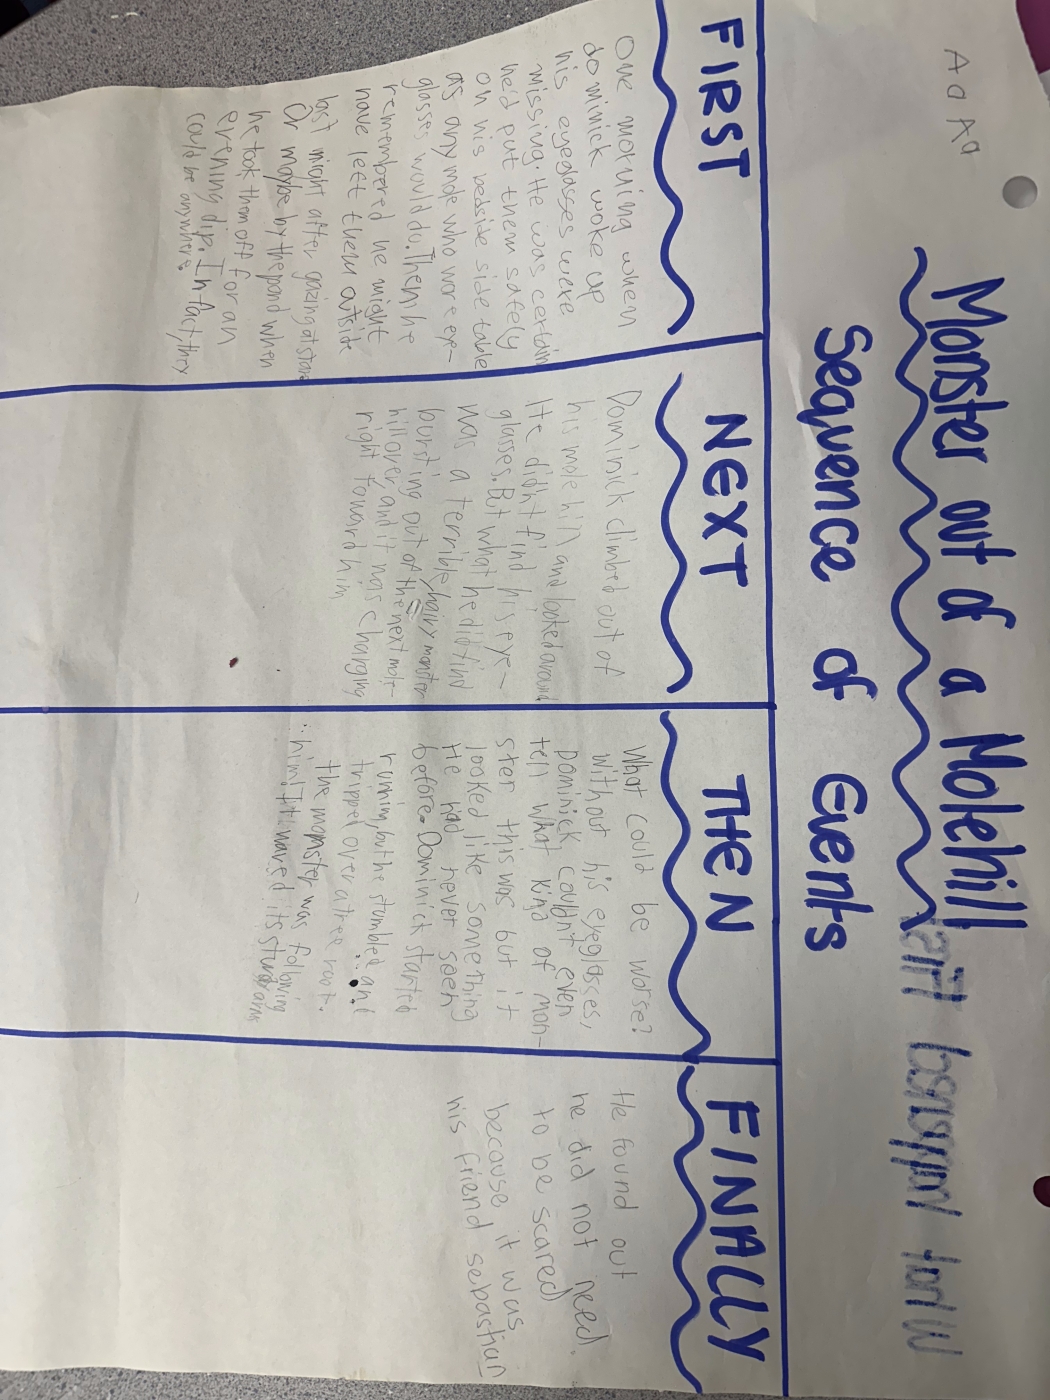 Aa Aa
Monster out of a Molehill
Sequence of Events
FIRST
One morning when
dominick woke up
his eyeglasses were
missing. He was certain
hed put them safely
on his bedside side table
as any mole who wore eye-
glasses would do. Them he
remembered he might
have left them outside
last night after gazing at stars
Or maybe by the pond when
he took them off for an
evening dip. In fact, they
could be anywhere.
NEXT
Dominick climbed out of
his mole hill and looked around
He didn't find his eye-
glasses. But what he did find
was a terrible, hairy monster
bursting out of the next mole
hill over and it was charging
right toward him
THEN
What could be worse?
without his eyeglasses,
Dominick couldn't even
tell what kind of mon-
ster this was but it
looked like something
He had never seen
before. Dominick started
running, but he stumbled and
tripped over a tree root.
the monster was following
him. It waved its arms
FINALLY
He found out
he did not need
to be scared
because it was
his friend sebastian